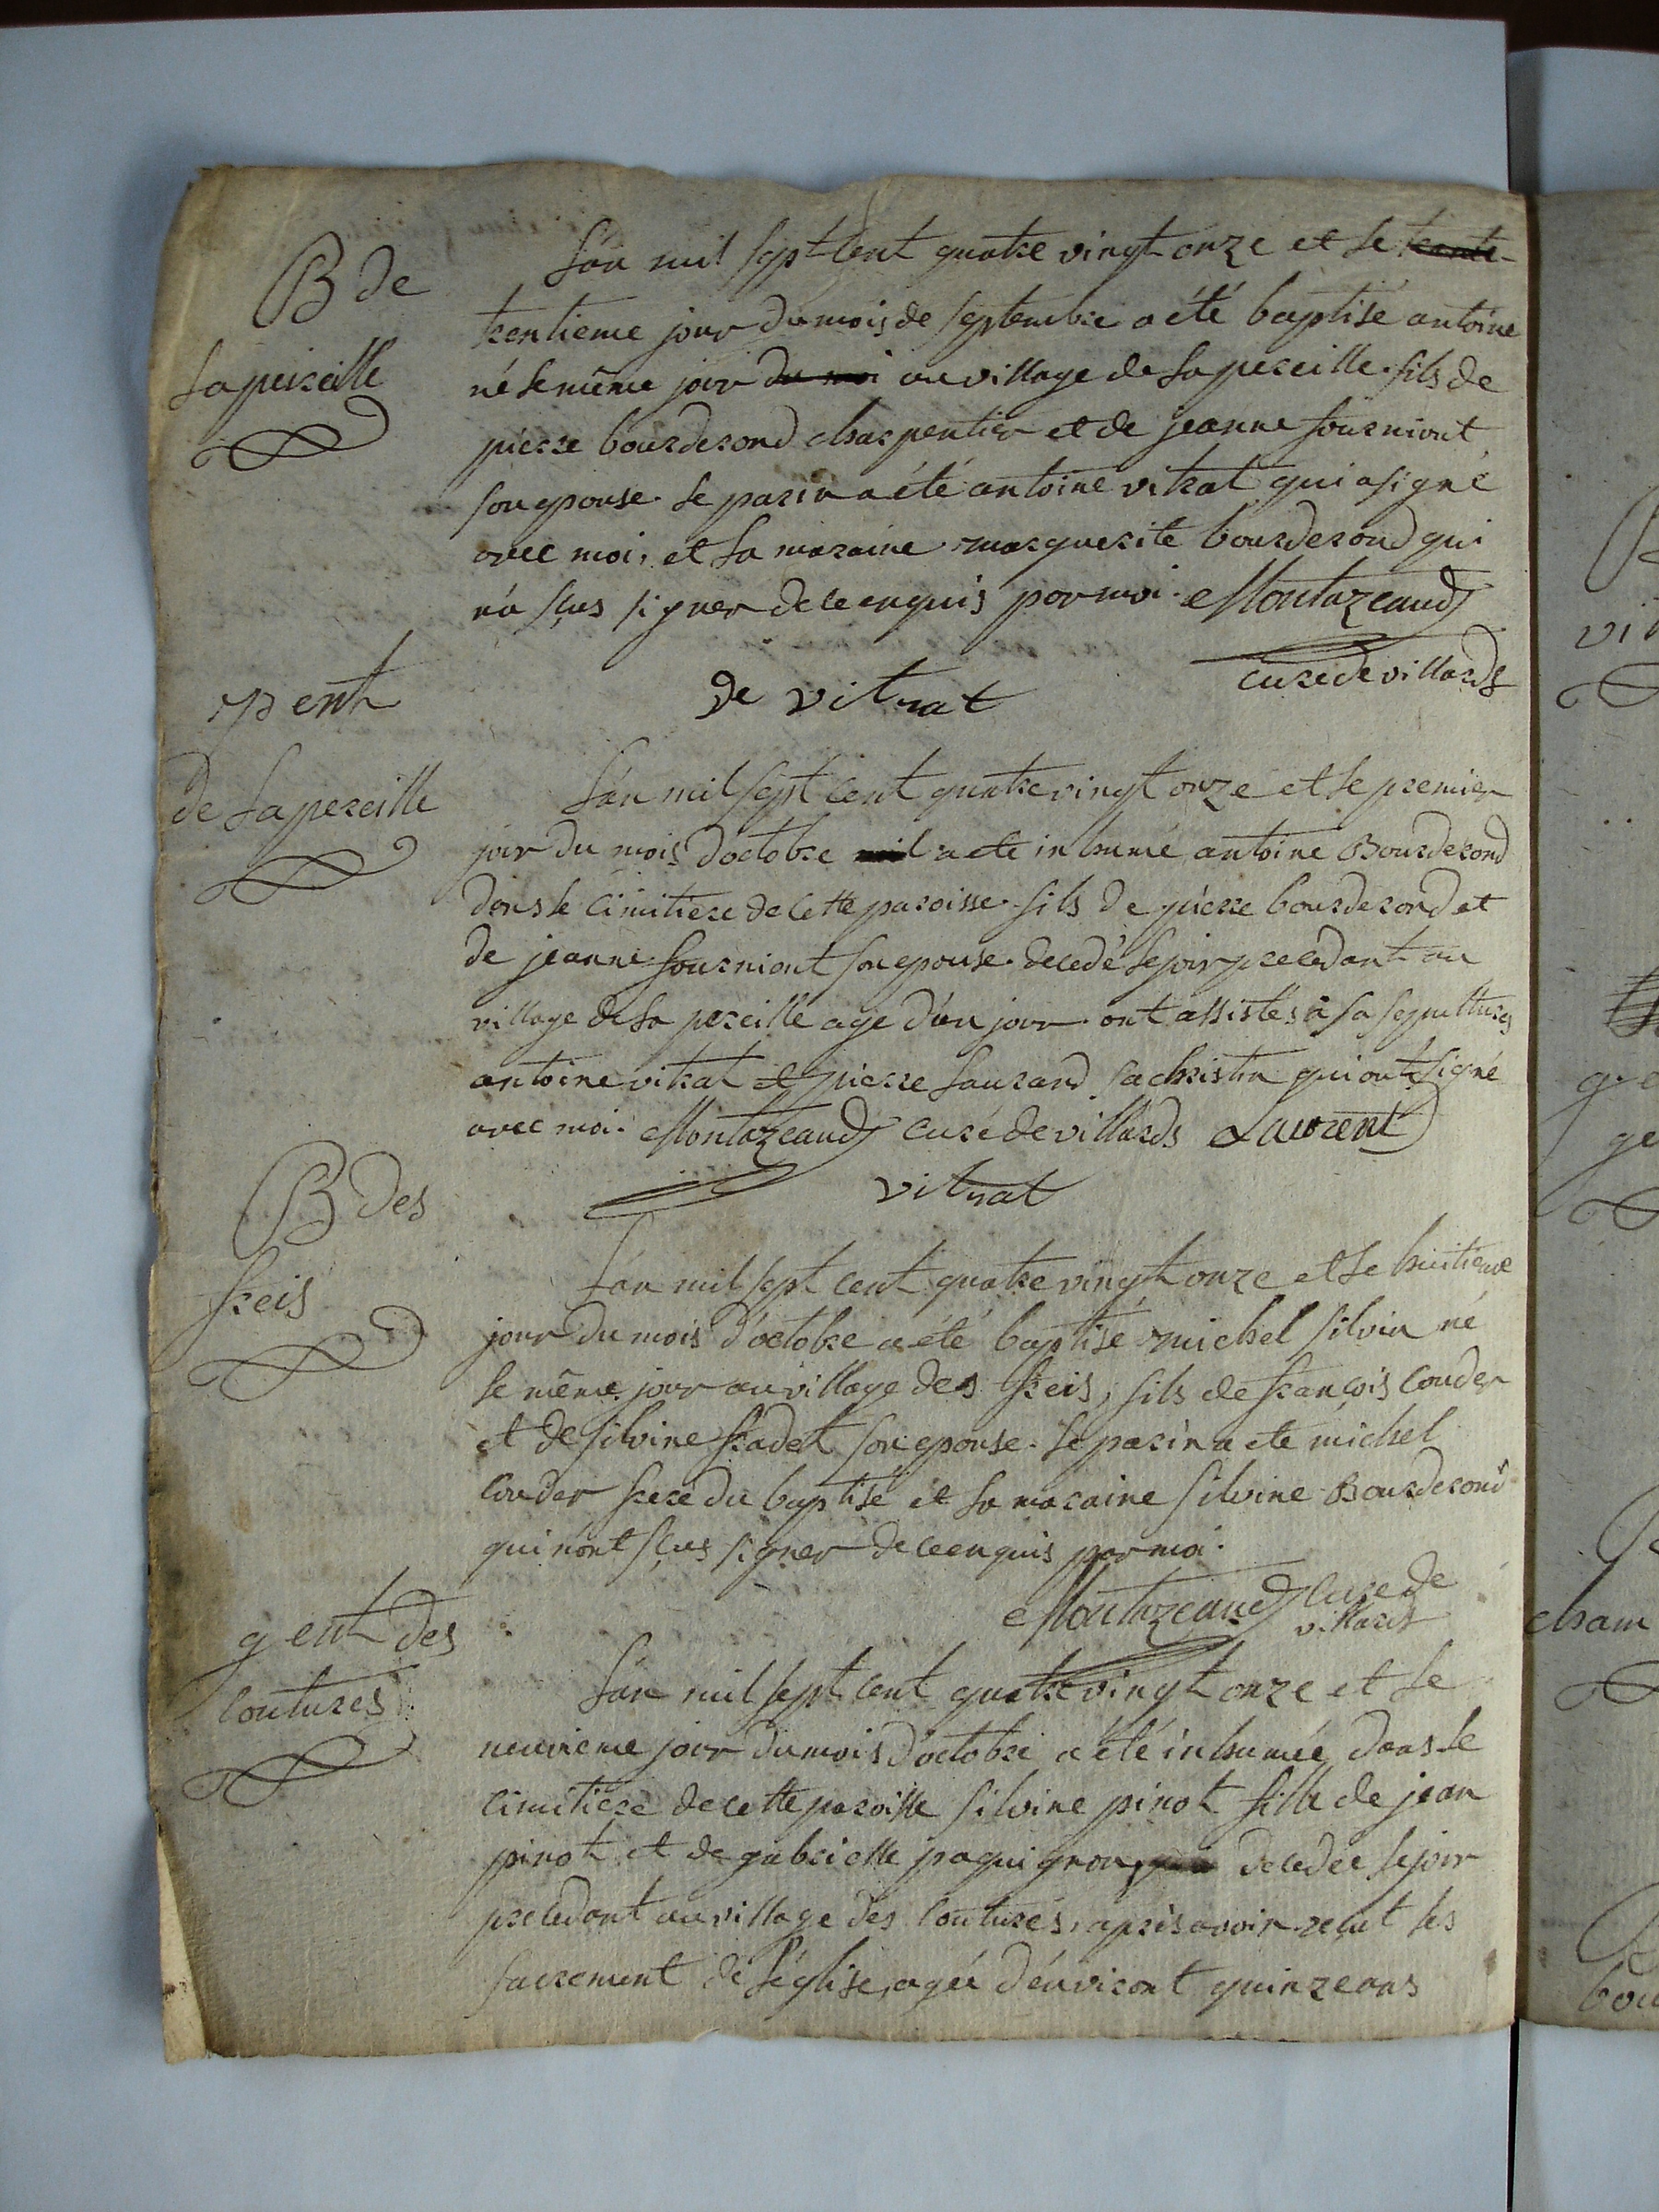 B de
la pereille
L'an mil sept cent quatre vingt onze et le trente
trentieme jour du mois de septembre a été baptisé antoine
né le même jour du moi au village de la pereille. fils de
pierre bourderond charpentier et de jeanne fourniout
son epouse. le parin a été antoine vitrat qui a signé
avec moi, et la maraine marguerite bourderond qui
n'a sçus signer de ce enquis par moi. Montazeaud
curé de villards
de vitrat
p ent
de la pereille
L'an mil sept cent quatre vingt onze et le premier
jour du mois d'octobre mil a ete inhumé antoine Bourderond
dans le cimitiere de cette paroisse. fils de pierre bourderond et
de jeanne fourniout son epouse. decedé le jour precedant au
village de la pereille age d'un jour. ont assistés a sa sepulture
antoine vitrat et pierre laurand sachristin qui ont signé
avec moi. Montazeaud curé de villards Laurent
vitrat
B des
freis
L'an mil sept cent quatre vingt onze et le huitieme
jour du mois d'octobre a été baptisé michel silvin né
le même jour au village des freis, fils de françois couder
et de silvine fradet son epouse. le parin a ete michel
couder frere du baptisé et la maraine silvine Bourderond
qui n'ont sçus signer de ce enquis par moi.
Montazeaud curé de
villards
g ent des
coutures
L'an mil sept cent quatre vingt onze et le
neuvieme jour du mois d'octobre a été inhumée dans le
cimitiere de cette paroisse silvine pinot fille de jean
pinot et de gabrielle paquignon, decedée le jour
precedant au village des coutures, après avoir reçut les
sacrement de l'église, agée d'environt quinze ans